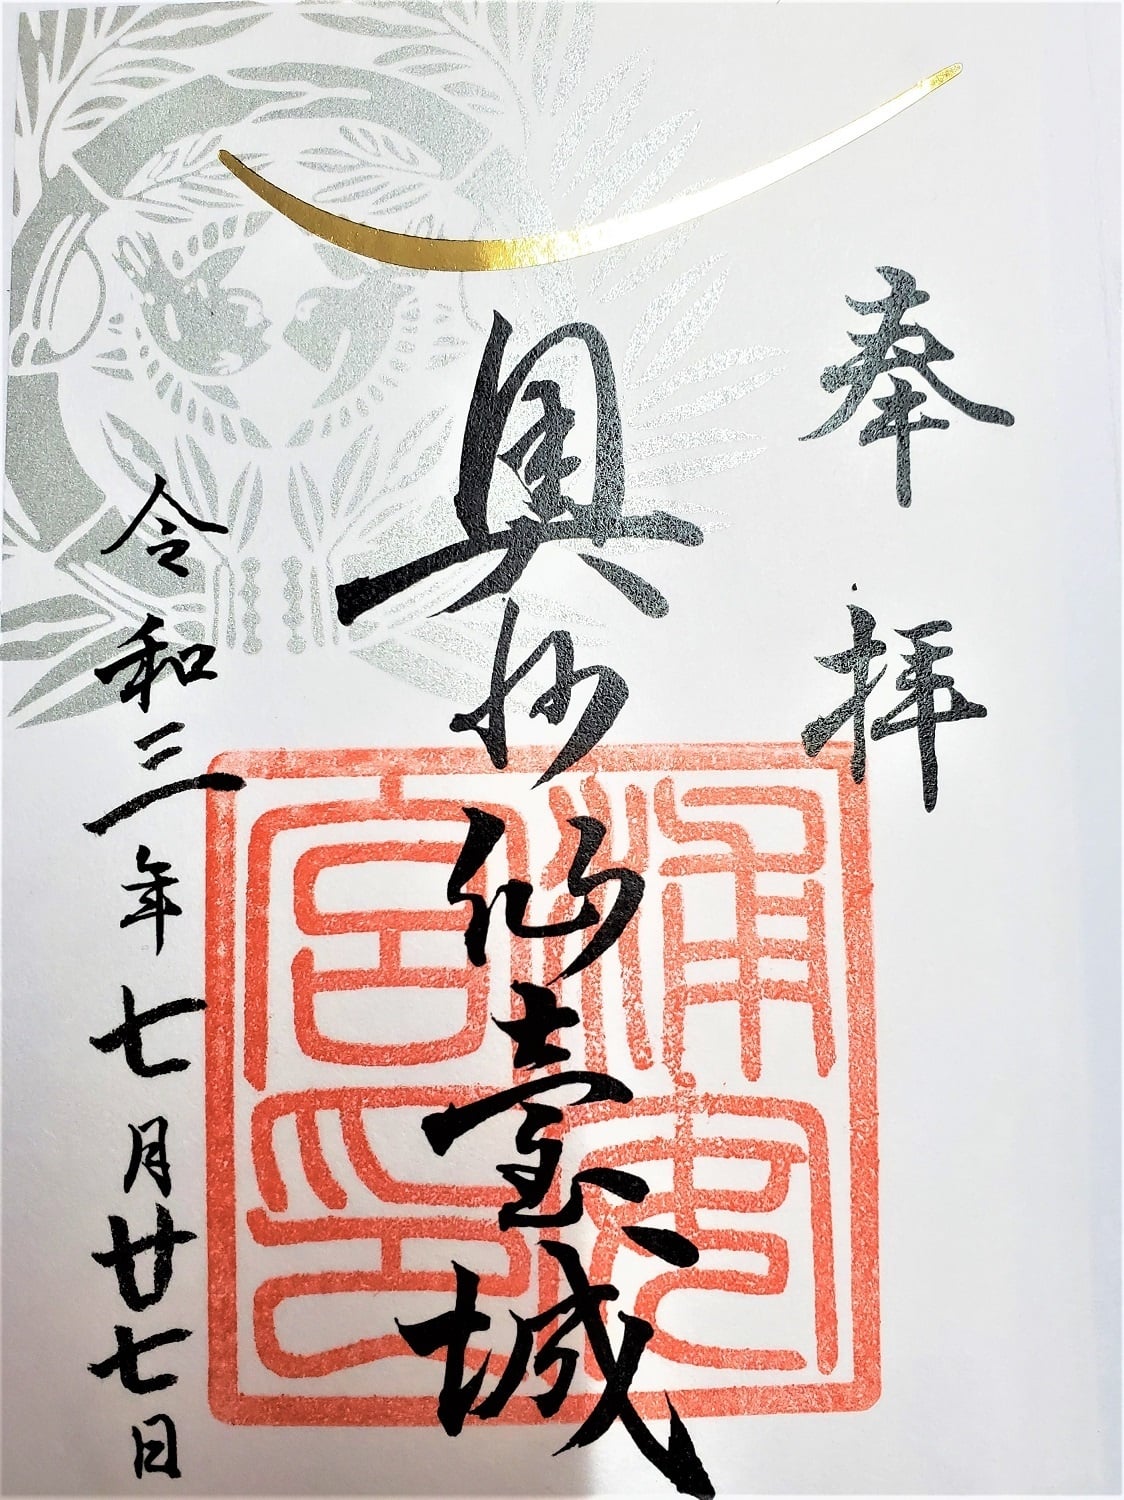 奉拝
奥州仙臺城
令和三年七月廿七日
浦安
宮印